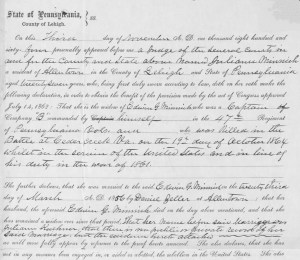 State of Pennsylvania, } ss
County of Lehigh.
On this Third day of November A. D. one thousand eight hundred and
sixty four personally appeared before me a Judge of the General Court in
and for the County and State above named Julianne Minnich
a resident of Allentown in the County of Lehigh and State of Pennsylvania
aged years, who, being first duly sworn according to law, doth on her oath make the
following declaration, in order to obtain the benefit of the provision made by the act of Congress approved
July 14, 1862: That she is the widow of Edwin G Minnich who was a Captain of
Company "B" commanded by himself in the 47th Regiment
of Pennsylvania Vols and who was killed in the
Battle at Cedar Creek Va. on the 19th day of October 1864
Whilst in the service of the United States and in line of
his duty in the war of 1861.
She further declares, that she was married to the said Edwin G. Minnich on the twenty third
day of March A. D. 1856 by Daniel Zeller at Allentown; that her
husband, the aforesaid Edwin G. Minnich died on the day above mentioned, and that she
has remained a widow ever since that period that her name before said marriage was
Julianne that there is no public or private record of her
said marriage
as will more fully appear by reference to the proof hereto annexed. She further declares, that she has not
in any manner been engaged in, or aided or abetted, the rebellion in the United States. She also